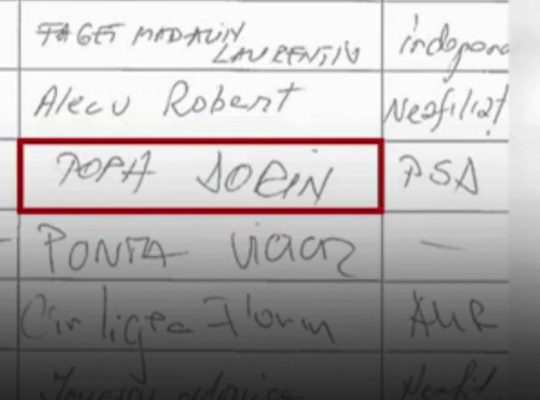 FAGET MADALIN
LAURENTIU
Alecu Robert
Neafiliat
POPA SORIN
PSD
PONTA VICTOR
—
Cîrligea Florin
AUR